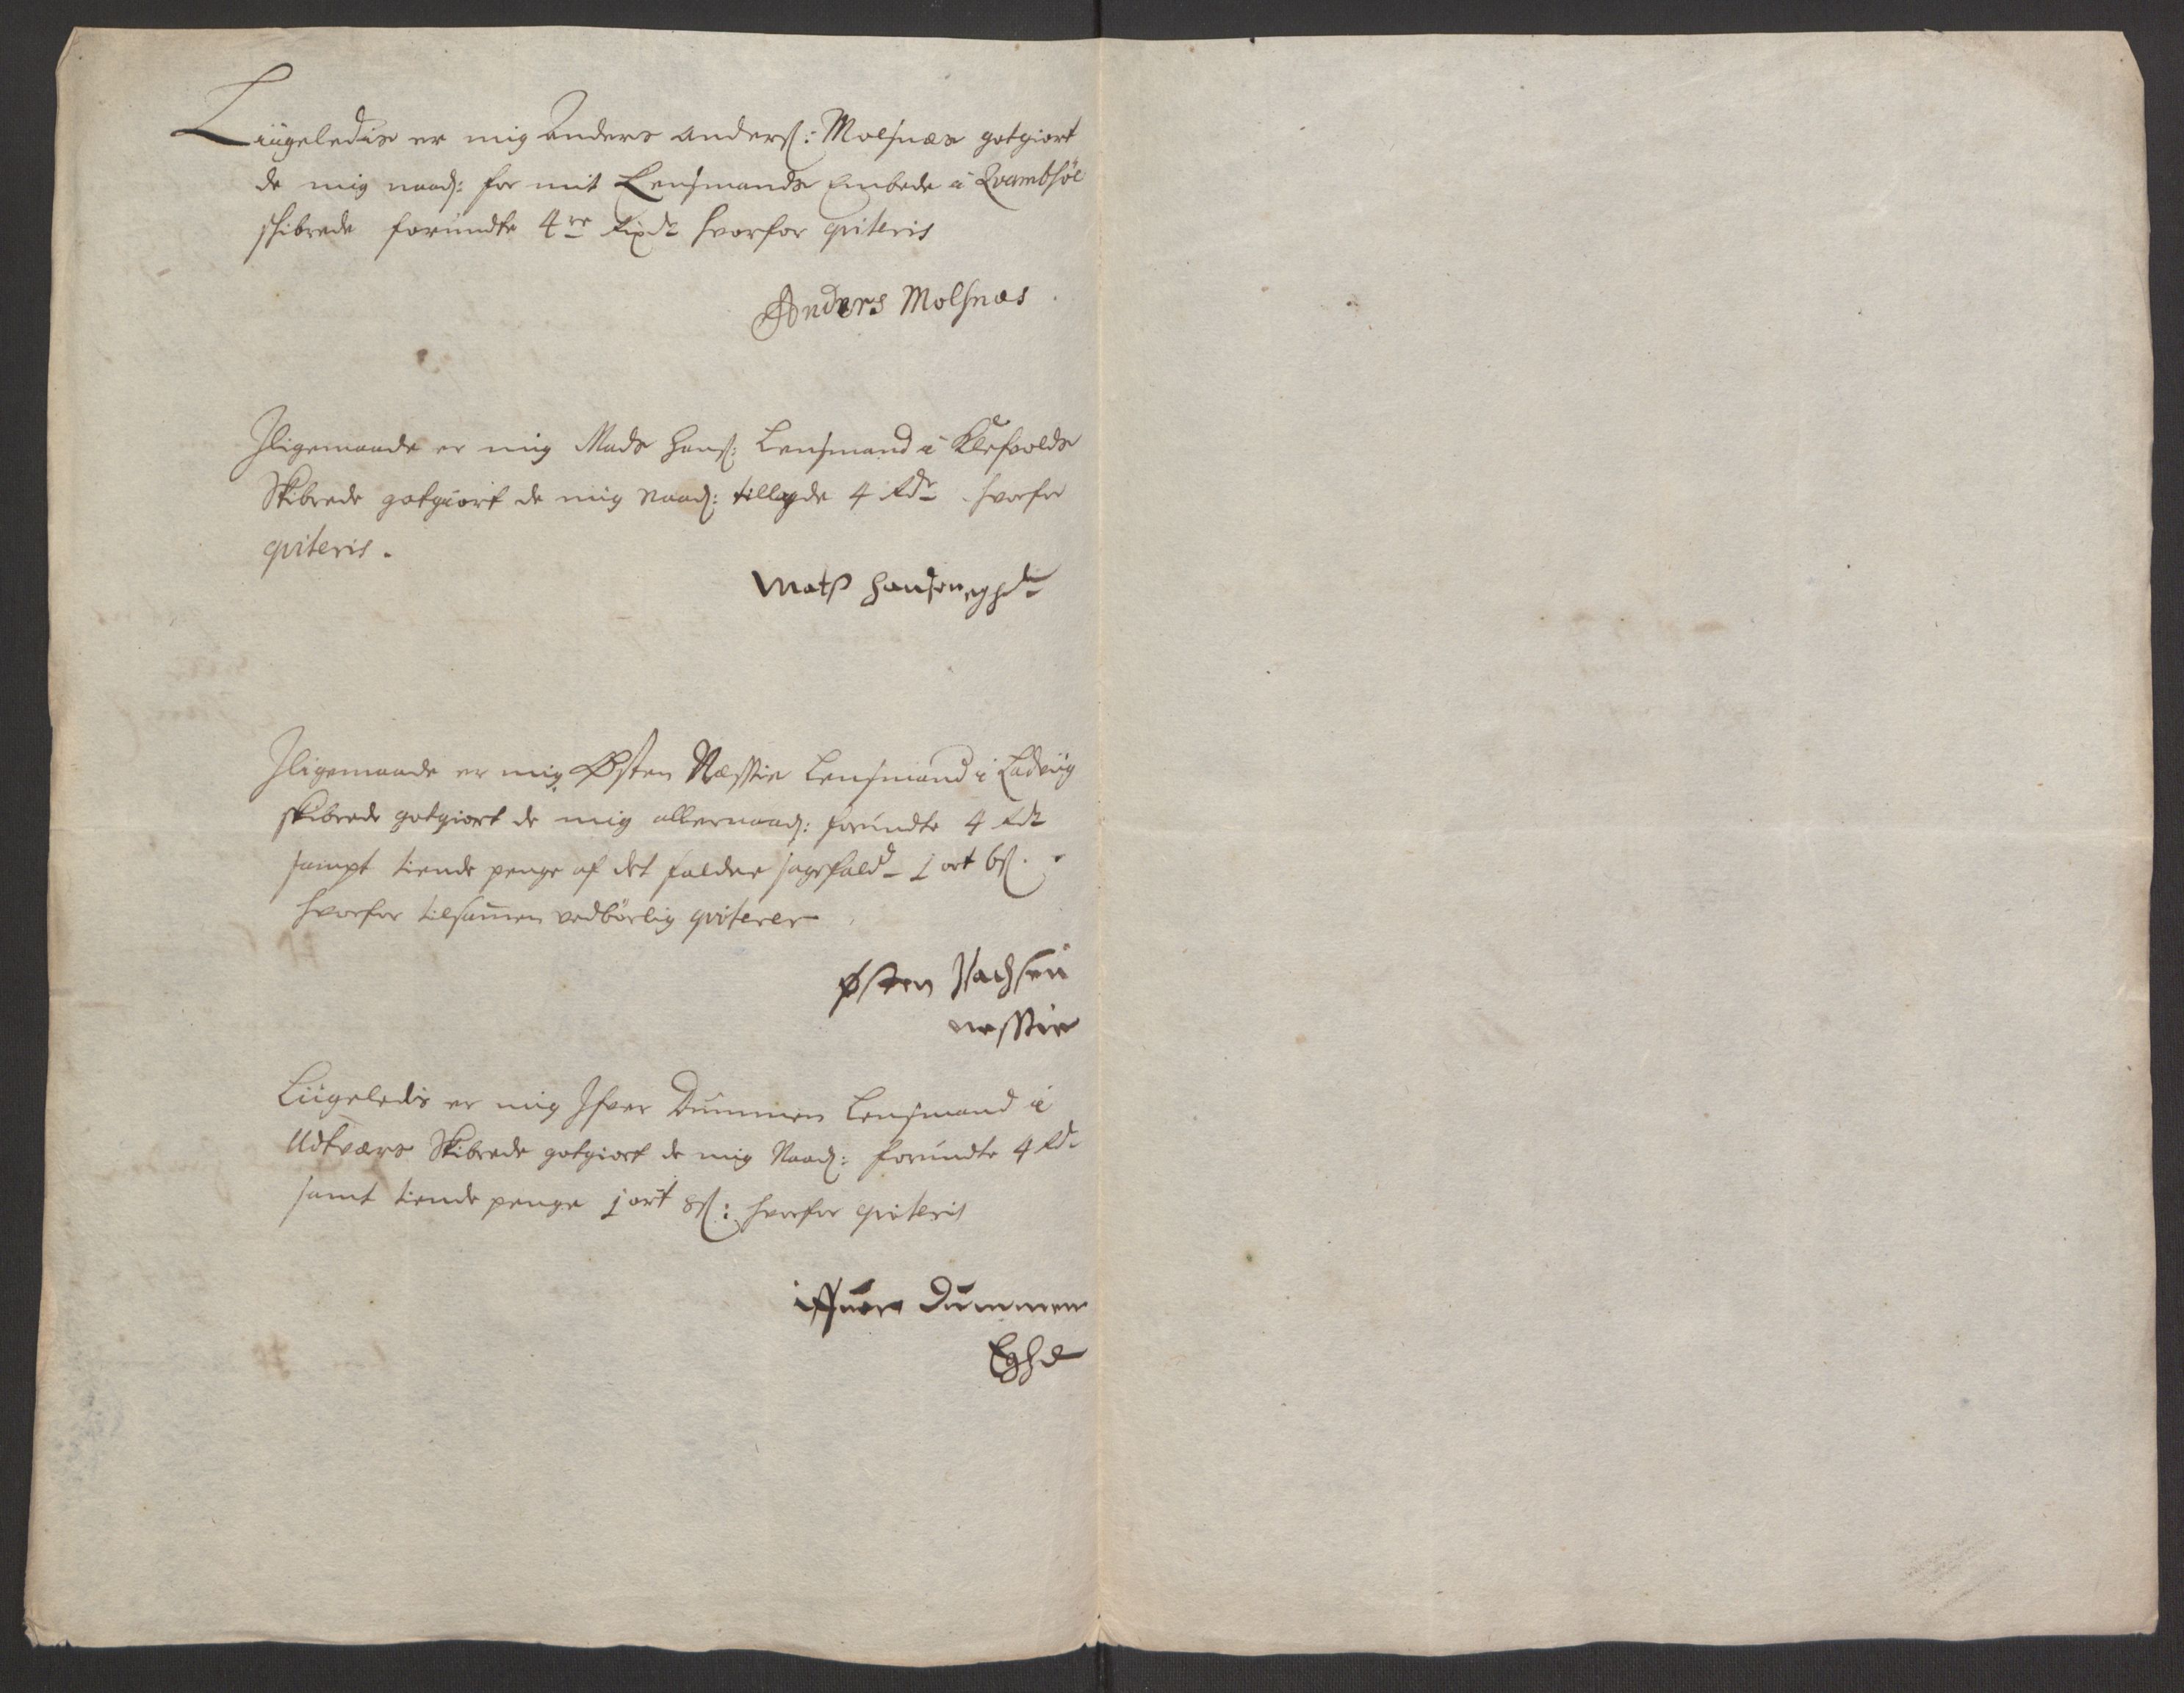 Liigeledis er mig Anders Anderß: Molsnæs gotgiort
de mig naad: for mit Lensmands Embede i Qvambsøe
schibrede forundte 4re Rixdr hvorfor qviteris
Anders Molsnæs
Jligemaade er mig Mads Hanß: Lensmand i Klefvolds
Skibrede gotgiort de mig Naad: tillagde 4 Rdr hvorfor
qviteris.
Matß Hansen eghd
Jligemaade er mig Østen Næssie Lensmand i Ladviig
skibrede gotgiort de mig allernaad: forundte 4 Rdr
sampt tiende penge af det faldne sagefald 1 ort 6ß.
hvorfor tilsammen vedbørlig qviterer
Østen Isachsen
nessie
Liigeledis er mig Ifver Dummen Lensmand i
Udtværs Skibrede gotgiort de mig Naad: forundte 4 Rdr
samt tiende penge 1 ort 8ß: hvorfor qviteris
iffuer Dummen
Eghd